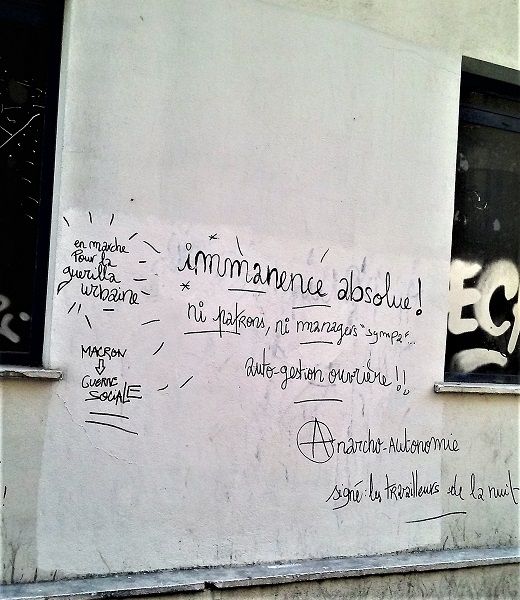 en marche
Pour la
guerilla
urbaine
MACRON
GUERRE
SOCIALE
immanence absolue!
ni patrons, ni managers "sympa"...
auto-gestion ouvrière!!
Anarcho-Autonomie
signé: les travailleurs de la nuit
EC